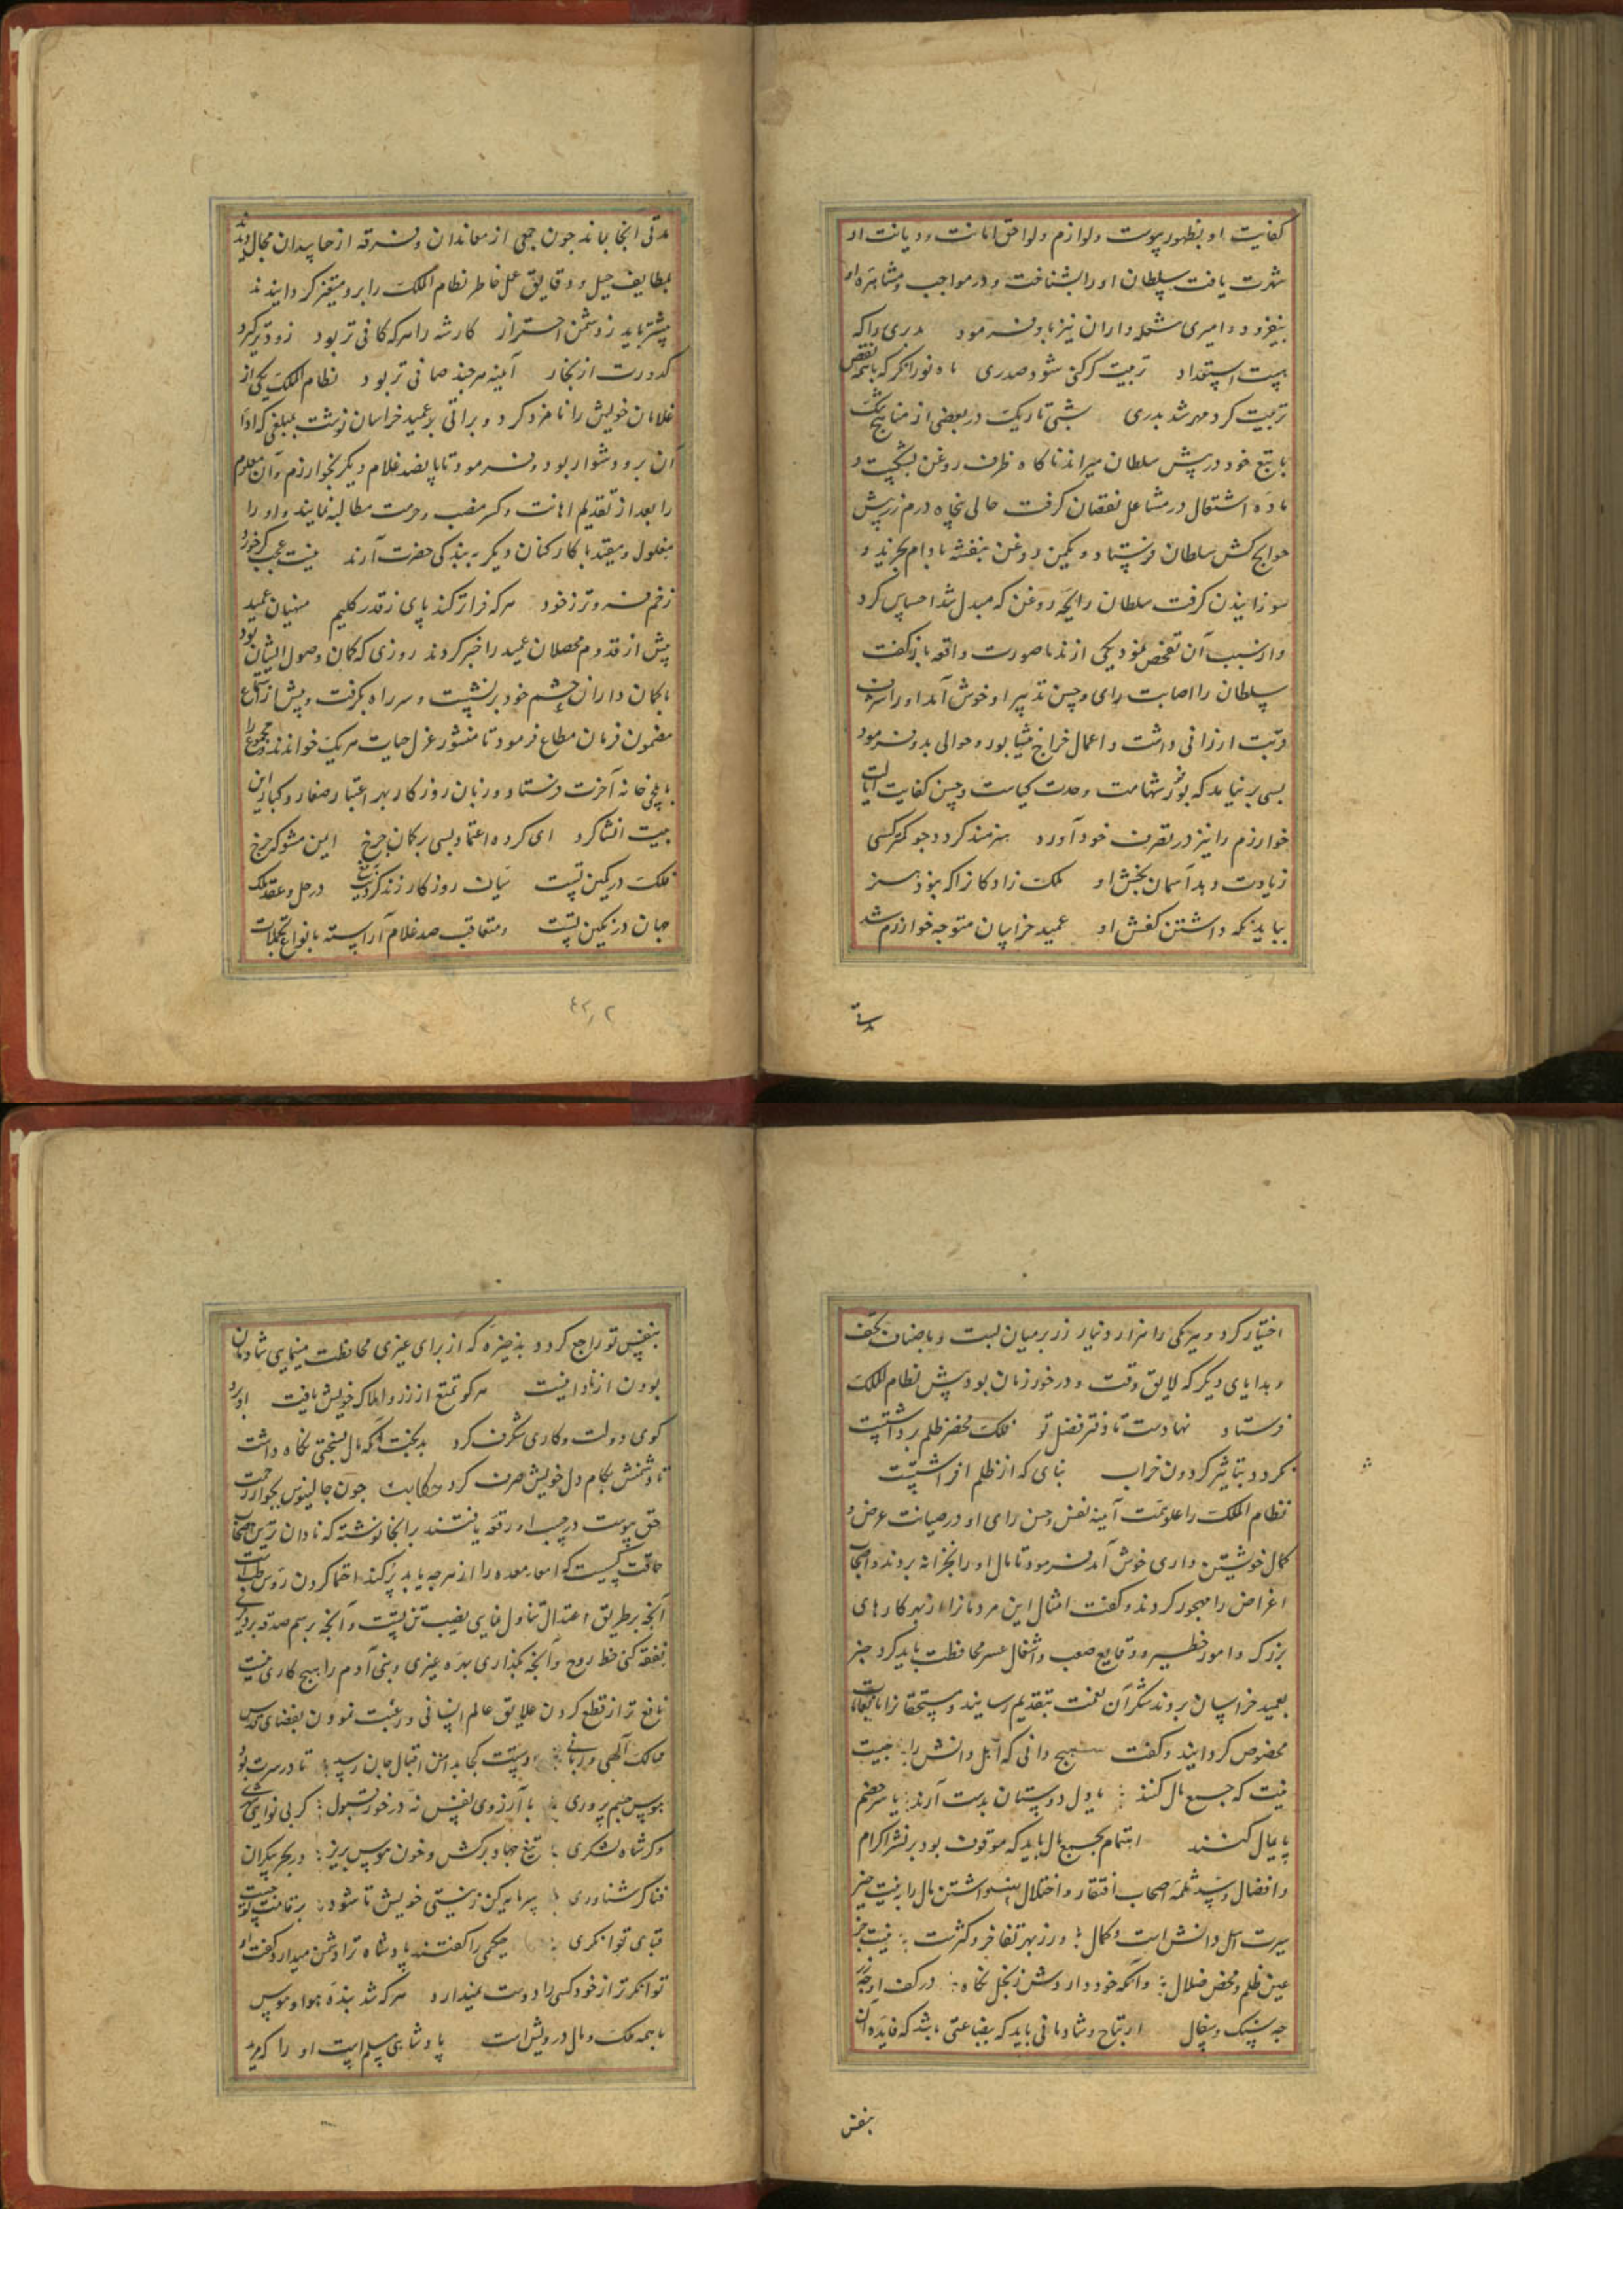 کفایت او بظهور پیوست ولوازم ولواحق امانت ودیانت او
شهرت یافت سلطان اورا بشناخت ودر مواجب ومشاهره او
بیفزود و امیری مشعله داران نیز باو فرمود بدری را که
هست استعداد تربیت کر کنی شود صدری ماه نورا نکر که با همه نقص
تربیت کرد مهر شد بدری شبی تاریک در بعضی از مناهج تنک
با تبع خود در پیش سلطان میراند ناکاه ظرف روغن بشکست و
ماده اشتعال در مشاعل نقصان کرفت حالی پنجاه درم زر پیش
حوایج کش سلطان فرستاد و یکمن روغن بنفشه بادام بخرید و
سوزانیدن کرفت سلطان رایحه روغن که مبدل شد احساس کرد
واز سبب آن تفحص نمود یکی از ندما صورت واقعه باز کفت
سلطان را اصابت رای وحسن تدبیر او خوش آمد اورا شرف
قربت ارزانی داشت و اعمال خراج نیشابور وحوالی بدو فرمود
بسی بر نیامد که بوفور شهامت وحدت کیاست وحسن کفایت ایالت
خوارزم را نیز در تصرف خود آورد هنرمند کردد جو کمتر کسی
زیادت دهد آسمان بخش او ملک زادکانرا که بود هنر
بباید نکه داشتن کفش او عمید خراسان متوجه خوارزم شد
مدتی
مدتی آنجا بماند جون جمعی از معاندان وفرقه از حاسدان مجال دیدند
بلطایف حیل و دقایق علل خاطر نظام الملک را برو متغیر کردانیدند
بیشتر باید ز دشمن احتراز کارشه را هر که کافی تر بود زودتر کیرد
کدورت از بخار آینه هر چند صافی تر بود نظام الملک یکی از
غلامان خویش را نامزد کرد و براتی بر عمید خراسان نوشت بمبلغی که ادا
آن برو دشوار بود و فرمود تا پانصد غلام دیکر بخوارزم وآن معلوم
را بعد از تقدیم اهانت وکسر منصب وحرمت مطالبه نمایند و او را
مغلول ومقید با کارکنان دیکر به بندکی حضرت آرند نیست عجب کر خورد
زخم فروتر ز خود هر که فراتر کند پای ز قدر کلیم منهیان عمید
پیش از قدوم محصلان عمید را خبر کردند روزی که کمان وصول ایشان بود
با کمان داران حشم خود برنشست و سر راه بکرفت و پیش از استماع
مضمون فرمان مطاع فرمود تا منشور عزل حیات هر یک خواندند ومجموع را
بایلجی خانه آخرت فرستاد و زبان روزکار بهر اعتبار صغار وکبار این
بیت انشا کرد ای کرده اعتماد بسی بر کمان جرخ ایمن مشو که جرخ
فلک در کمین تست در حل وعقد ملک
جهان در نکین تست ومتعاقب صد غلام آراسته بانواع تجملات
اختیار کرد و هر یکی را هزار دینار زر بر میان بست و باصناف تحف
و هدایای دیکر که لایق وقت و در خور زمان بود پیش نظام الملک
فرستاد نهادست تا دفتر فضل تو فلک محضر ظلم برداشتست
نکردد بتاثیر کردون خراب بنای که از ظلم افراشتست
نظام الملک را علو همت آینه نفس وحسن رای او در صیانت عرض و
کمال خویشتن داری خوش آمد فرمود تا مال او را بخزانه بردند و اصحاب
اغراض را مهجور کردند و کفت امثال این مردمانرا از بهر کارهای
بزرک و امور خطیر و وقایع صعب و اشغال عسر محافظت باید کرد جیز
بعمید خراسان بردند شکر آن نعمت بتقدیم رسانید و مستحقانرا بانعامات
مخصوص کردانید وکفت هیچ دانی که اهل دانش را جیست
نیت که جمع مال کنند یا دل دوستان بدست آرند یا سر خصم
پایمال کنند اهتمام بجمع مال باید که موقوف بود بر نشر اکرام
وافضال وسد ثلمه اصحاب افتقار واختلال داشتن مال را به نیت خیر
سیرت اهل دانش است و کمال ورز بهر تفاخر وکثرت نیست جز
عین ظلم ومحض ضلال وآنکه خود دارد ش ز بخل نکاه در کف او جه زر
جه سنک و سفال ارتیاح وشادمانی باید که ببضاعتی باشد که فایده آن
بنفس
بنفس تو راجع کردد و بذخیره که از برای غیری محافظت مینمایی شادمان
بودن از نادانیست هر کو تمتع از زر واملاک خویش یافت او برد
کوی دولت وکاری شکرف کرد بدبخت آنکه مال بسختی نکاه داشت
تا دشمنش بکام دل خویش صرف کرد حکایت جون جالینوس بجوار رحمت
حق پیوست در جیب او رقعه یافتند بر آنجا نوشته که نادان ترین اصحاب
حماقت کسیست که امعا ومعده را از هرجه یابد پر کند احتما کردن روس طب است
آنجه بر طریق اعتدال تناول نمایی نصیب تن تست و آنجه برسم صدقه بر درویش
نفقه کنی حظ روح و آنجه بکذاری بهره غیری وبنی آدم را هیچ کاری نیست
نافع تر از قطع کردن علایق عالم انسانی ورغبت نمودن بفضای قدس
ممالک الهی وربانی دوستت کجا بدامن اقبال جان رسد تا در سرت بود
هوس جسم پروری با آرزوی نفس نه در خور قبول کر بی نوای شهری
وکر شاه لشکری تیغ جهاد برکش وخون هوس بریز در بحر بیکران
فنا کر شناوری پیراهن کن ز نیستی خویش تا شود بر قامت تو چست
قبای توانکری حکیمی را کفتند پادشاه ترا دشمن میدارد کفت او
توانکرتر از خود کسی را دوست نمیدارد هر که شد بنده هوا وهوس
با همه ملک ومال درویش است پادشاهی مسلم است او را که